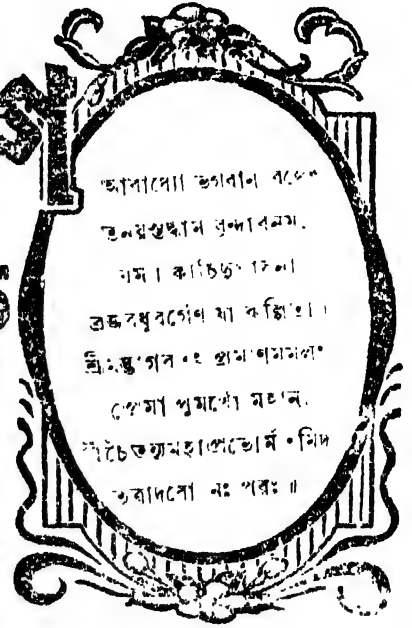 আরাধ্যো ভগবান ব্রজেশ
তনয়স্তদ্ধাম বৃন্দাবনম,
রম্যা কাচিদুপাসনা
ব্রজবধূবর্গেণ যা কল্পিতা।
শ্রীমদ্ভাগবতং প্রমাণমমলং
প্রেমা পুমর্থো মহান,
শ্রীচৈতন্যমহাপ্রভোর্মতমিদং
তত্রাদরো নঃ পরঃ॥